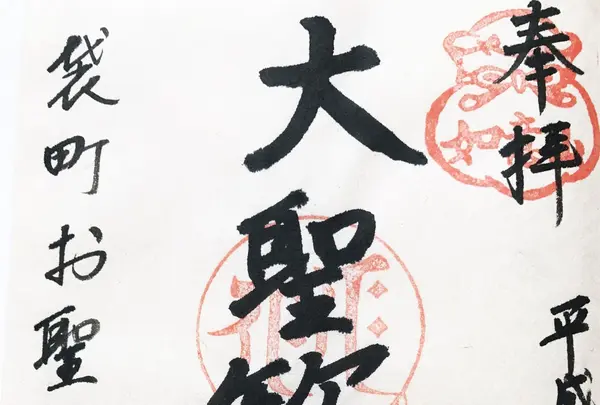 奉拝
平成
大聖歓
袋町お聖